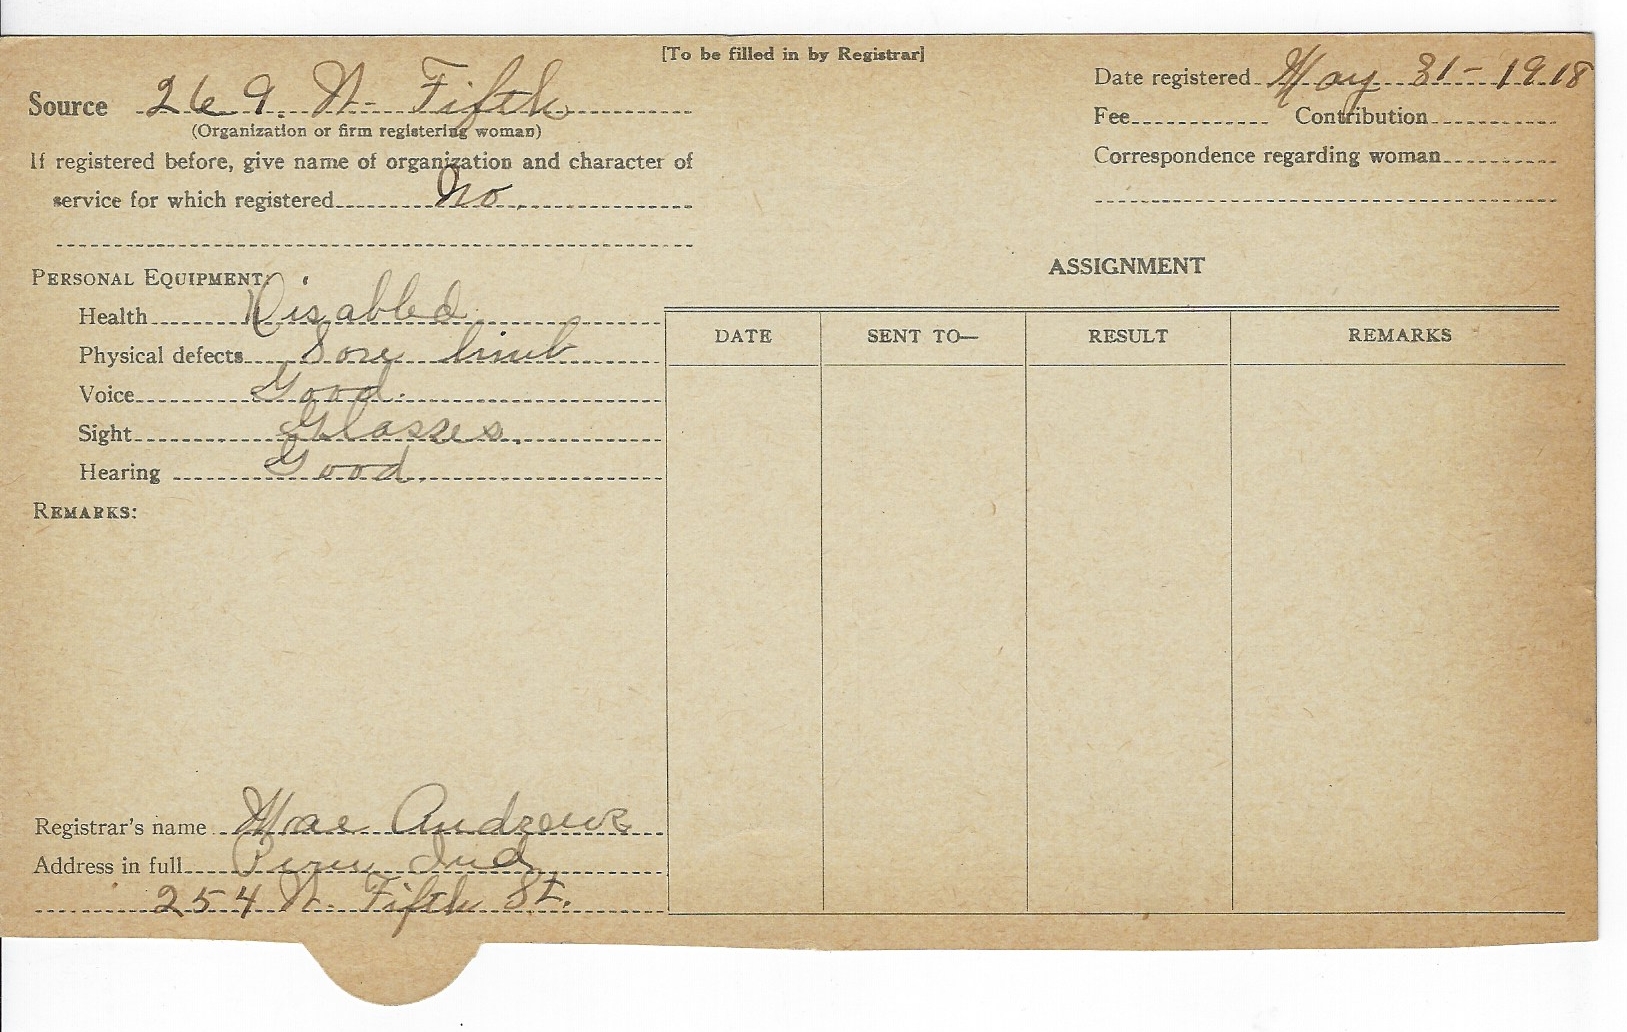 [To be filled in by Registrar]
Source 269. N- Fifth
(Organization or firm registering woman)
If registered before, give name of organization and character of
service for which registered No.
Date registered May 31-1918
Fee Contribution
Correspondence regarding woman
PERSONAL EQUIPMENT:
Health Disabled
Physical defects Sore limb
Voice Good.
Sight Glasses.
Hearing Good.
REMARKS:
ASSIGNMENT
DATE SENT TO— RESULT REMARKS
Registrar's name Mae Andrews
Address in full Peru Ind
254 N. Fifth St.